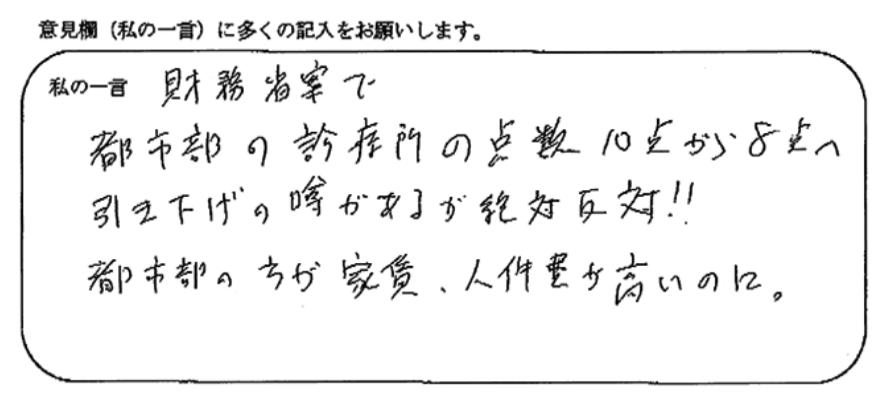 意見欄（私の一言）に多くの記入をお願いします。
私の一言 財務省案で
都市部の診療所の点数10点から8点へ
引き下げの噂があるが絶対反対!!
都市部の方が家賃、人件費が高いのに。